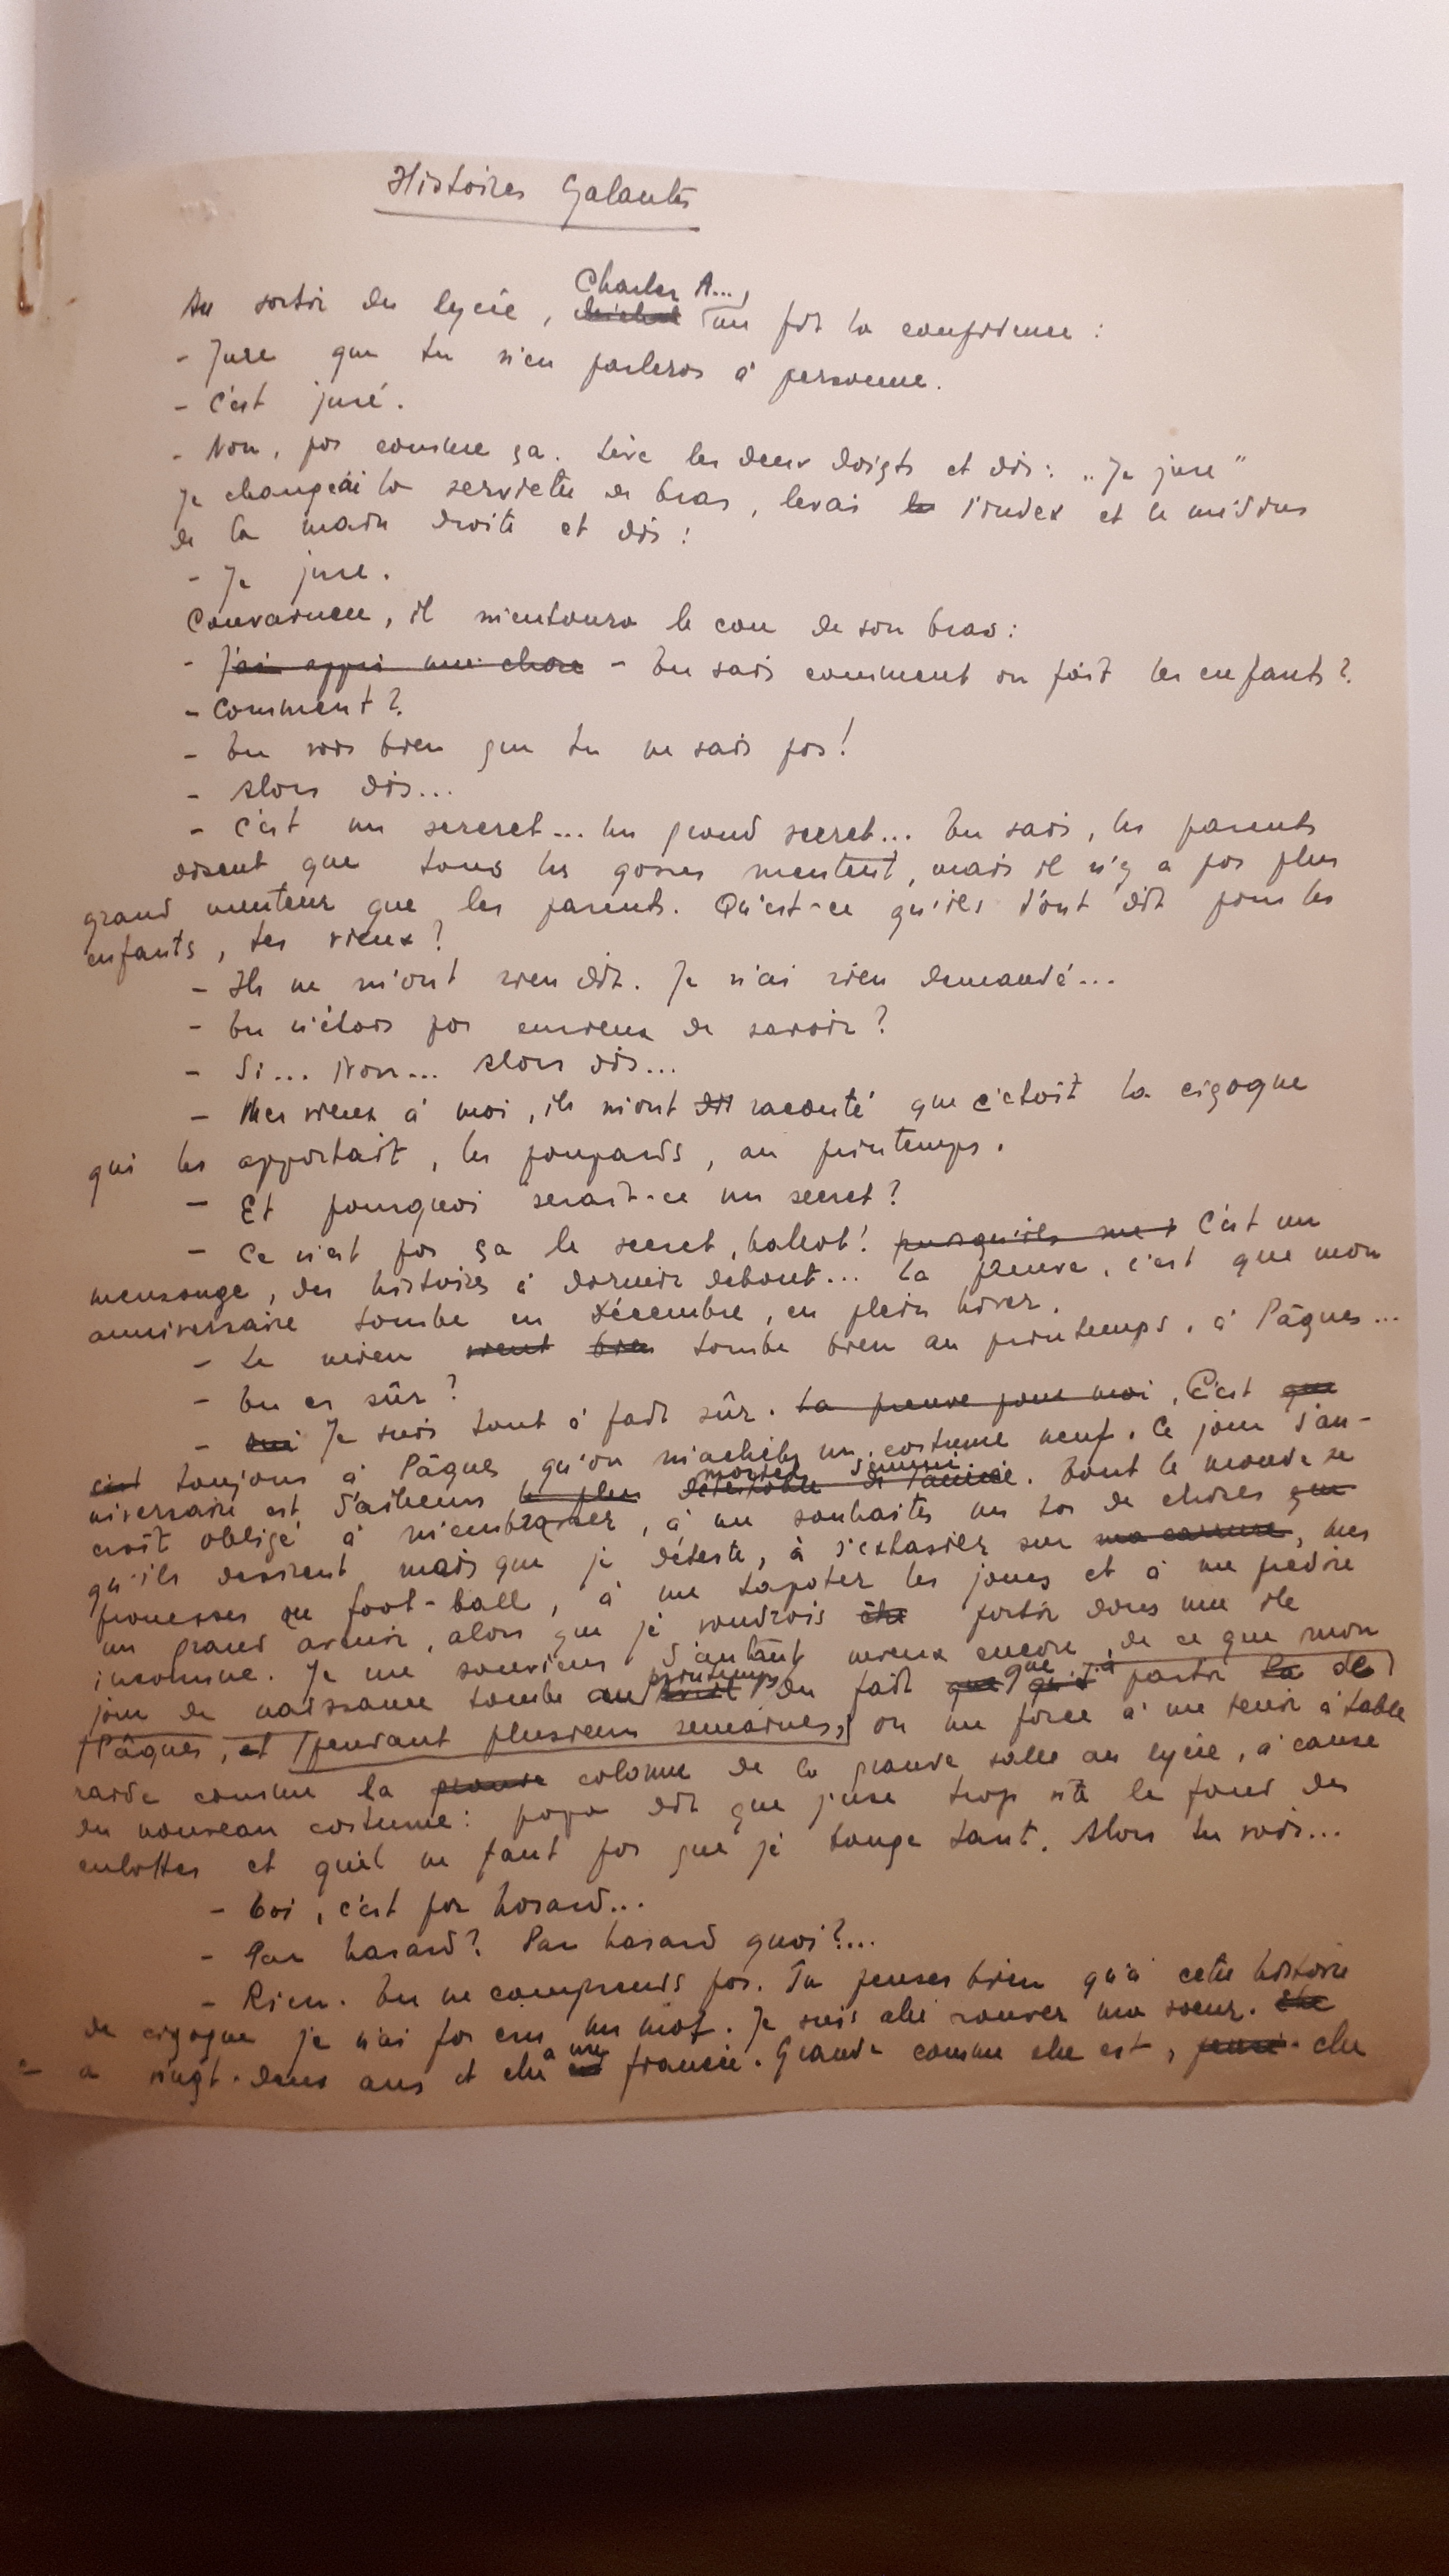 Histoires Galantes
Charles A...,
Au sortir du lycée, me fit la confidence :
- Jure que tu n'en parleras à personne.
- C'est juré.
- Non, pas comme ça. Lève les deux doigts et dis : „Je jure"
Je changeai la serviette de bras, levai le l'index et le médius
de la main droite et dis :
- Je jure.
Convaincu, il m'entoura le cou de son bras :
- J'ai appris une chose - Tu sais comment on fait les enfants ?
- Comment ?
- Tu vois bien que tu ne sais pas !
- Alors dis...
- C'est un sercret... Un grand secret... Tu sais, les parents
disent que tous les gosses mentent, mais il n'y a pas plus
grand menteur que les parents. Qu'est-ce qu'ils t'ont dit pour les
enfants, tes vieux ?
- Ils ne m'ont rien dit. Je n'ai rien demandé...
- Tu n'étais pas curieux de savoir ?
- Si... Non... Alors dis...
- Mes vieux à moi, ils m'ont dit raconté que c'était la cigogne
qui les apportait, les poupards, au printemps.
- Et pourquoi serait-ce un secret ?
- Ce n'est pas ça le secret, ballot ! puisqu'ils me C'est un
mensonge, des histoires à dormir debout... La preuve, c'est que mon
anniversaire tombe en décembre, en plein hiver.
- Le mien vient bien tombe bien au printemps, à Pâques...
- Tu es sûr ?
- oui Je suis tout à fait sûr. La preuve pour moi, C'est que
c'est toujours à Pâques qu'on m'achète un costume neuf. Ce jour d'an-
mortel d'ennui
niversaire est d'ailleurs le plus détestable de l'année. Tout le monde se
croit obligé à m'embrasser, à me souhaiter un tas de choses que
qu'ils desirent mais que je déteste, à s'extasier sur ma carrure, mes
prouesses au foot-ball, à me tapoter les joues et à me predire
un grand avenir, alors que je voudrais être partir dans une île
inconnue. Je me souviens d'autant mieux encore, de ce que mon
printemps que à
jour de naissance tombe au du fait que qu'il partir la de
Pâques, et pendant plusieurs semaines, on me force à me tenir à table
raide comme la grande colonne de la grande salle au lycée, à cause
du nouveau costume : papa dit que j'use trop vite le fond des
culottes et qu'il ne faut pas que je bouge tant. Alors tu vois...
- Toi, c'est par hasard...
- Par hasard ? Par hasard quoi ?...
- Rien. Tu ne comprends pas. Tu penses bien qu'à cette histoire
de cigogne je n'ai pas cru un mot. Je suis allé trouver ma soeur. Elle
a une
a vingt-deux ans et elle est fiancée. Grande comme elle est, elle